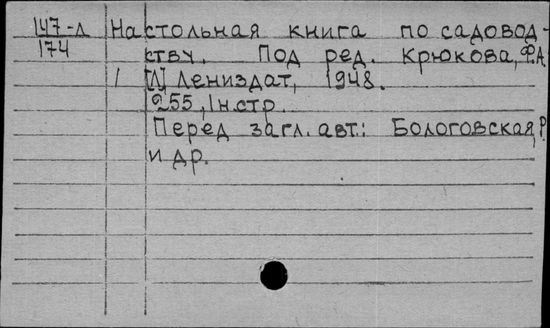 147-д Настольная книга по садовод-
174 ству. Под ред. Крюкова, Ф.А.
1 [Л] Лениздат, 1948.
255, 1н.стр.
Перед загл. авт.: Бологовская, Р.
и др.